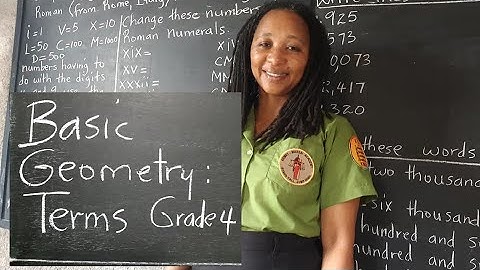 Roman (from Rome, Italy).
i = 1 V = 5 X = 10
L = 50 C = 100 M = 1000
D = 500
numbers having to
do with the digits
Change these number
Roman Numerals.
XiX =
XV =
XXXii =
,925
,573
0,073
2,417
,320
these words
two thousan
six thousan
hundred and s
hundred and s
Basic
Geometry:
Terms Grade 4